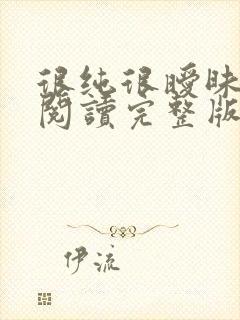 很純很曖昧
閱讀完整版
伊流